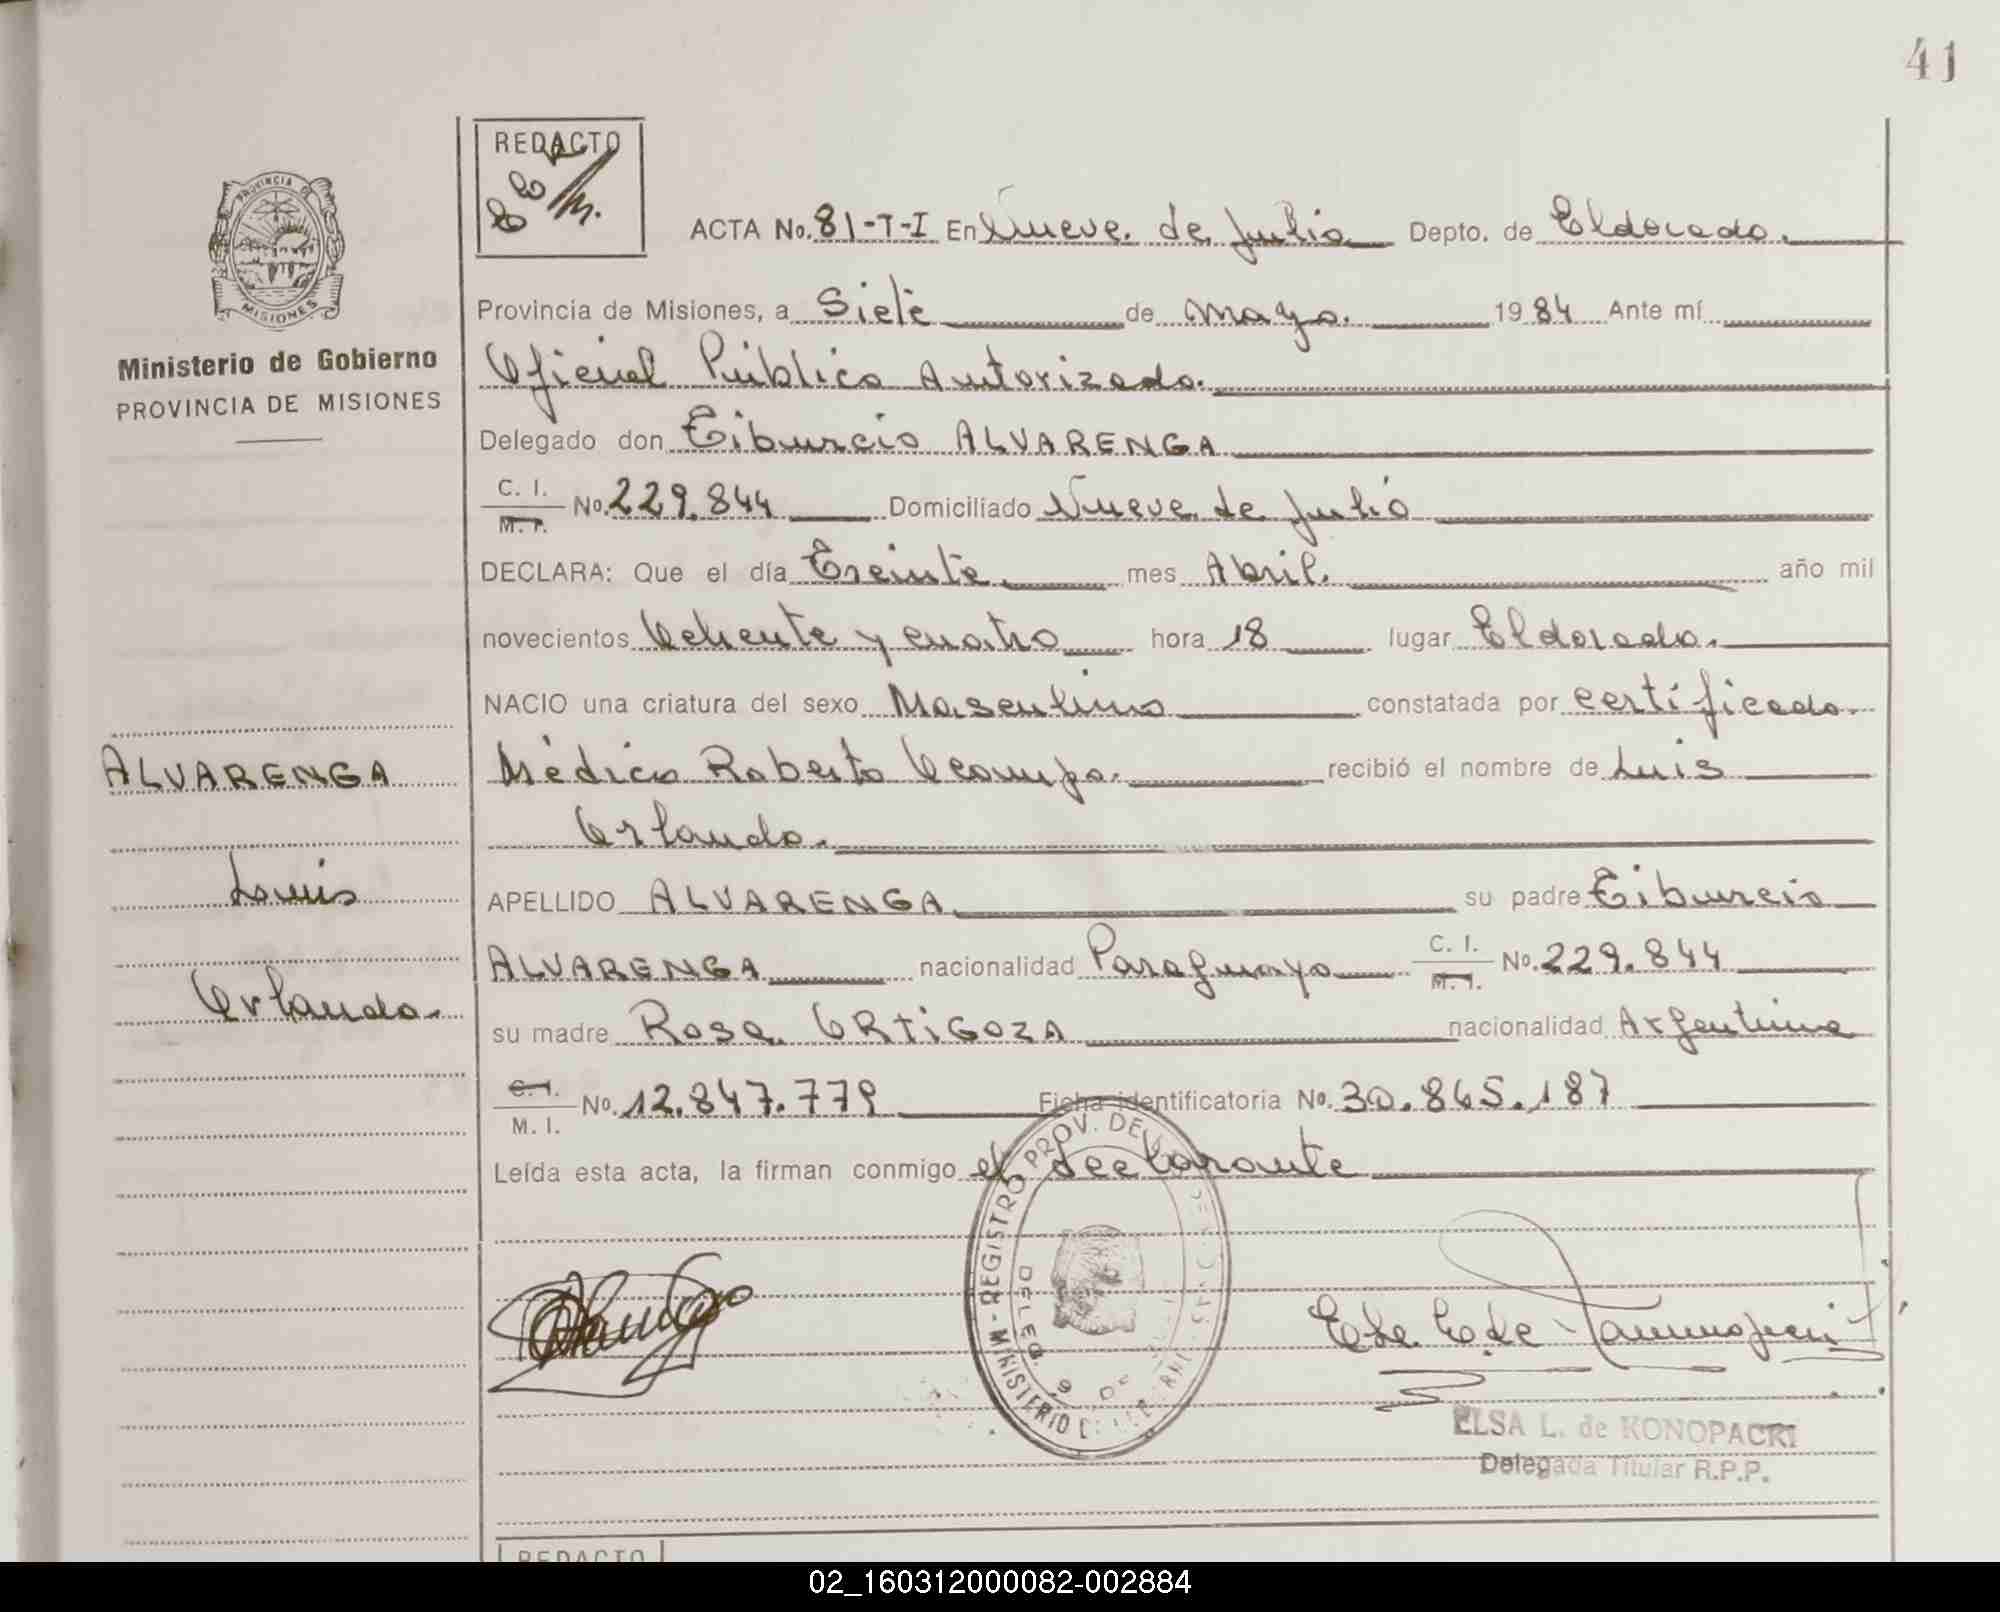 41
REDACTO
PROVINCIA DE
MISIONES
Ministerio de Gobierno
PROVINCIA DE MISIONES
ACTA No. 81-T-I En Nueve de Julio Depto. de Eldorado.
Provincia de Misiones, a Siete de mayo. 1984 Ante mí
Oficial Público Autorizado.
Delegado don Tiburcio ALVARENGA
C. I. / M. I. No. 229.844 Domiciliado Nueve de Julio
DECLARA: Que el día Treinta mes Abril. año mil
novecientos Ochenta y cuatro hora 18 lugar Eldorado.
NACIO una criatura del sexo Masculino constatada por certificado
Médico Roberto Ocampo. recibió el nombre de Luis
Orlando.
APELLIDO ALVARENGA su padre Tiburcio
ALVARENGA nacionalidad Paraguayo C. I. / M. I. No. 229.844
su madre Rosa ORTIGOZA nacionalidad Argentina
C. I. / M. I. No. 12.847.779 Ficha identificatoria No. 30.865.187
Leída esta acta, la firman conmigo el declarante
ALVARENGA
Luis
Orlando.
REGISTRO PROV. DE
MINISTERIO
DELEG. 9 DE
ELSA L. de KONOPACKI
Delegada Titular R.P.P.
REDACTO
02_160312000082-002884